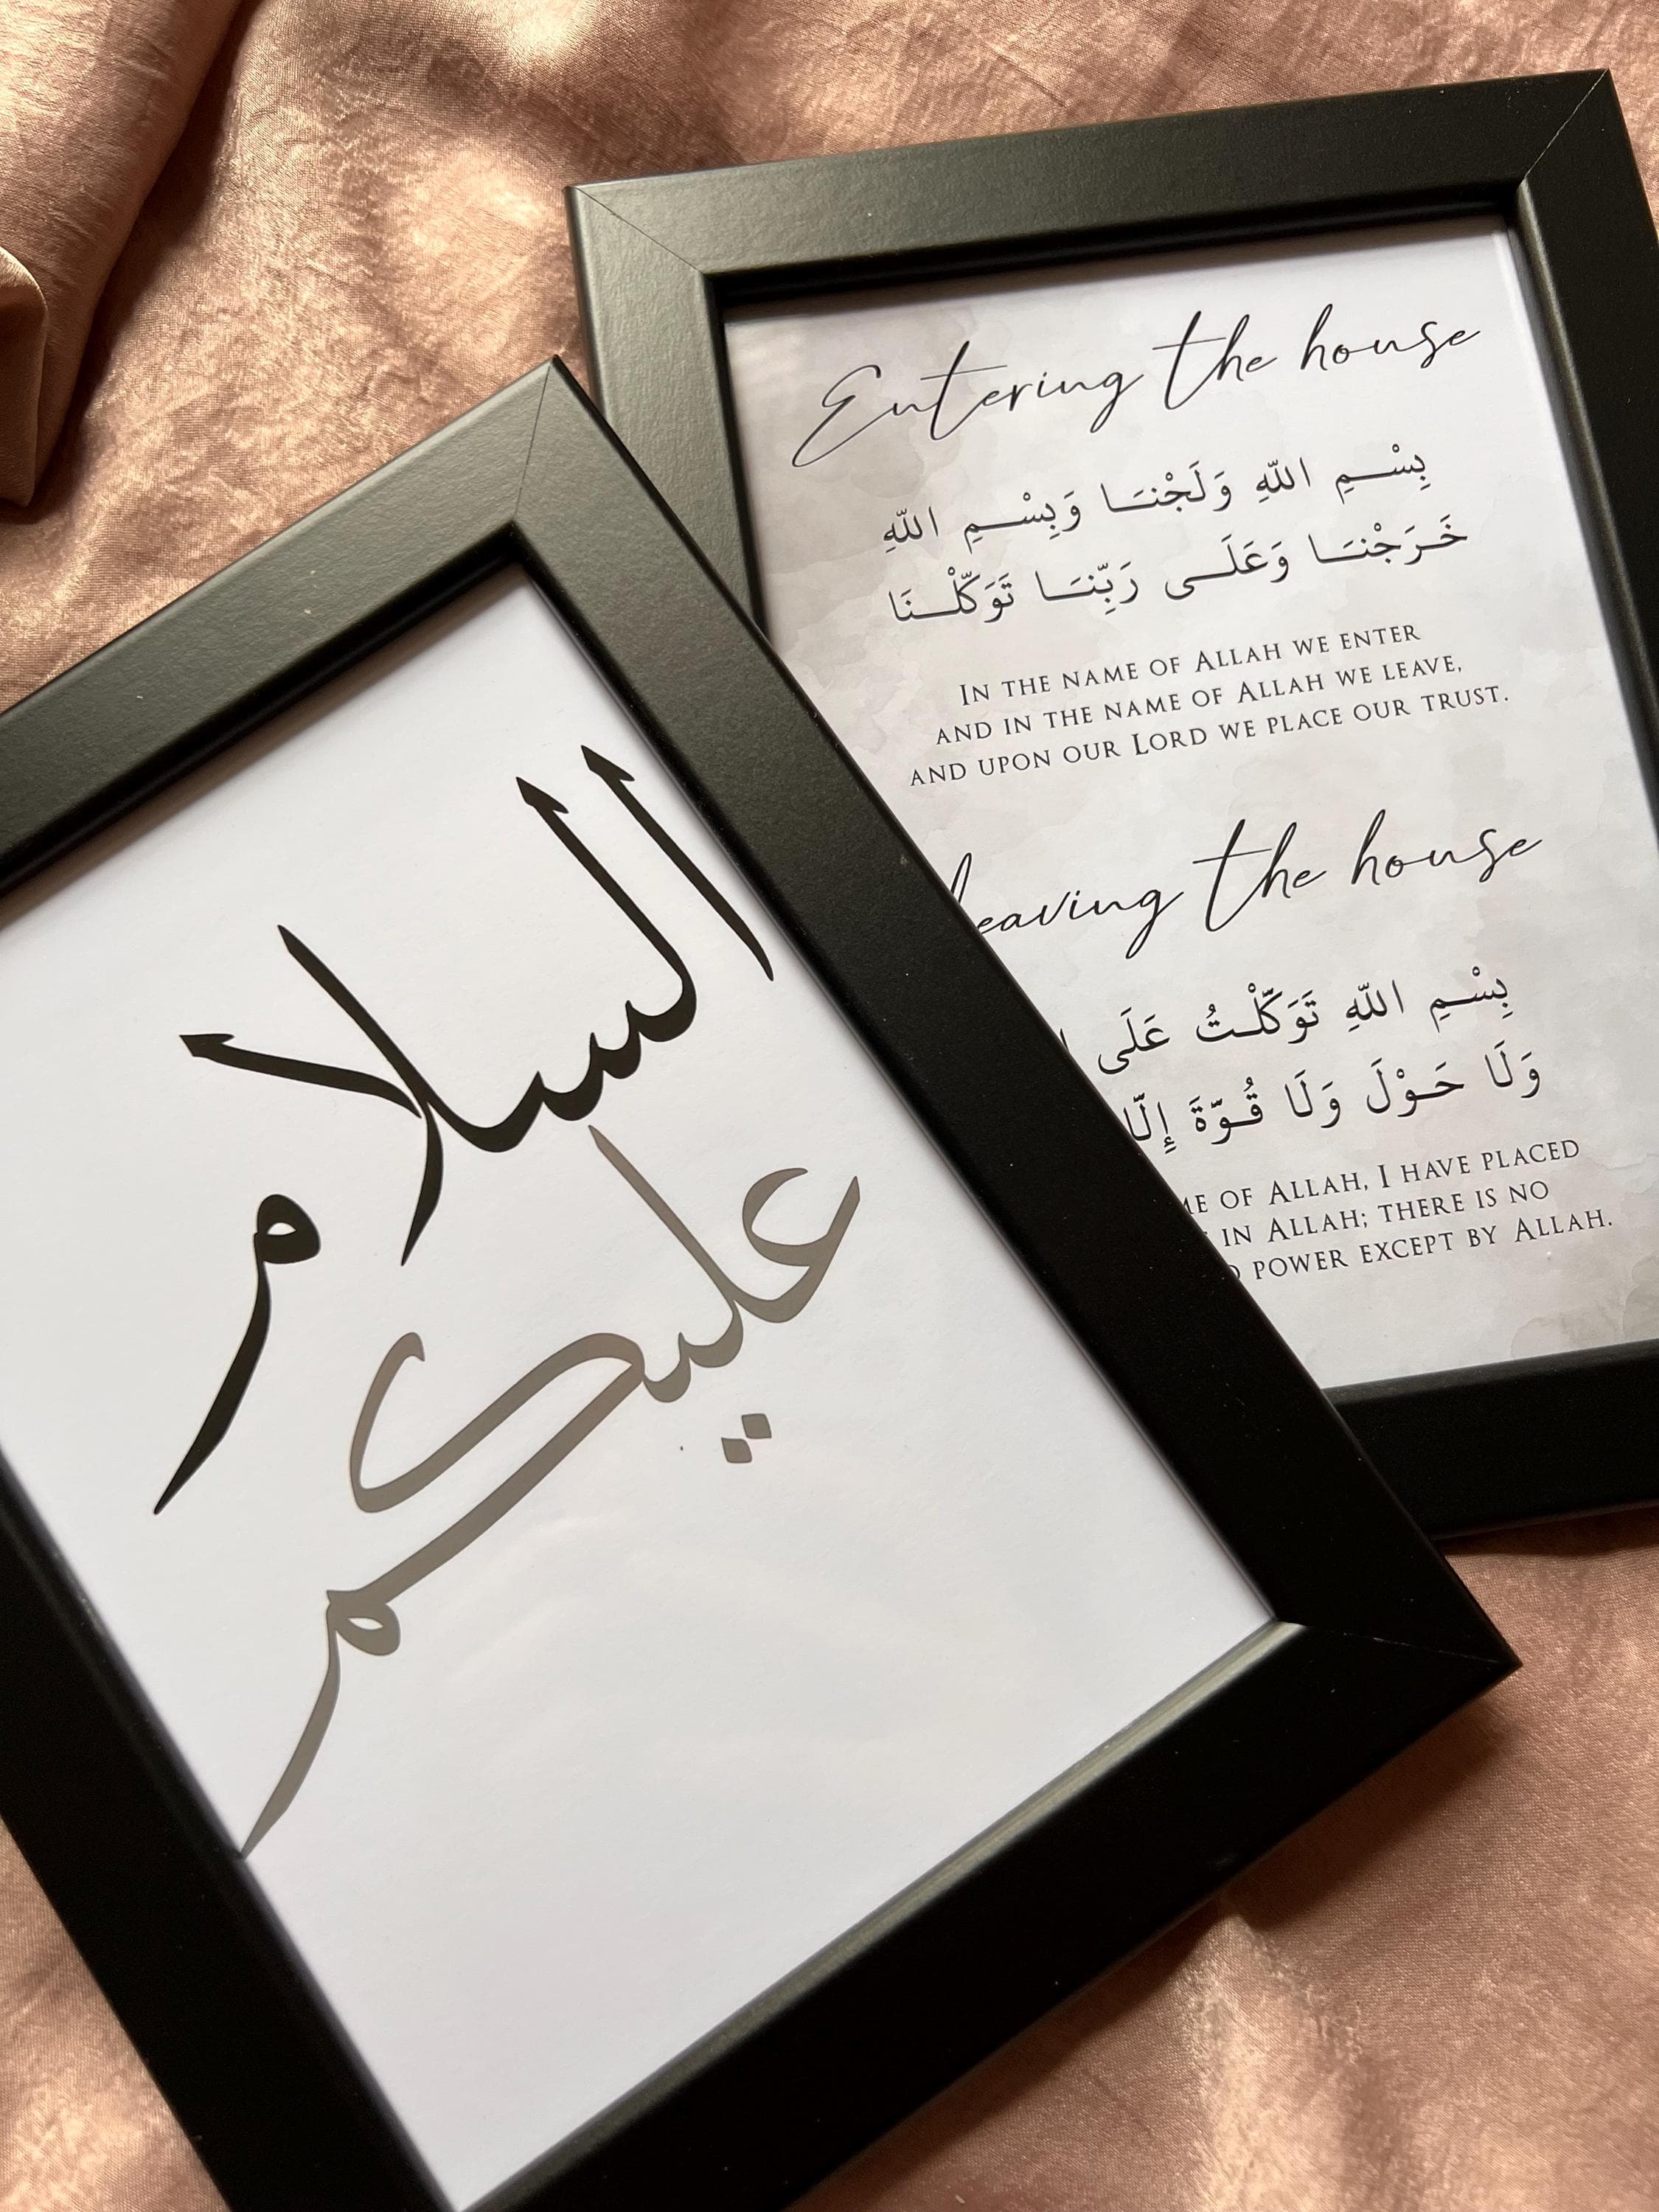 السلام
عليكم
Entering the house
بِسْـــمِ اللّٰهِ وَلَجْنَــا وَبِسْـــمِ اللّٰهِ
خَـرَجْنَــا وَعَلَـــى رَبِّنَــا تَوَكَّلْـــنَا
In the name of Allah we enter
and in the name of Allah we leave,
and upon our Lord we place our trust.
leaving the house
بِسْـــمِ اللّٰهِ تَوَكَّلْـتُ عَلَى
وَلَا حَـوْلَ وَلَا قُـوَّةَ إِلَّا
of Allah, I have placed
in Allah; there is no
power except by Allah.